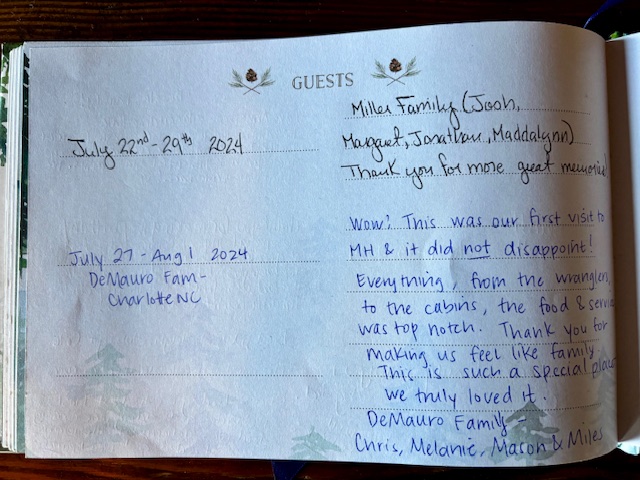 GUESTS
July 22nd - 29th 2024
Miller Family (Josh,
Margaret, Jonathan, Maddalynn)
Thank you for more great memories!
July 27 - Aug 1 2024
DeMauro Fam-
Charlotte NC
Wow! This was our first visit to
MH & it did not disappoint!
Everything, from the wranglers,
to the cabins, the food & service
was top notch. Thank you for
making us feel like family.
This is such a special place
we truly loved it.
DeMauro Family -
Chris, Melanie, Mason & Miles